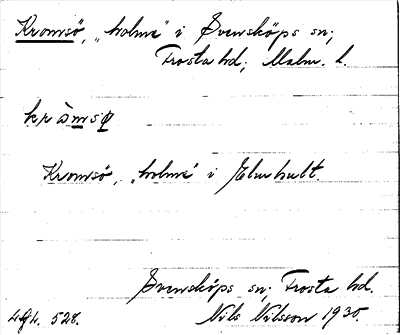 Kromsö, "holme" i Svensköps sn;
Frosta hd; Malm. l.
krὼmsø
Kromsö, "holme" i Elmhult.
Svensköps sn; Frosta hd.
Nils Nilsson 1930.